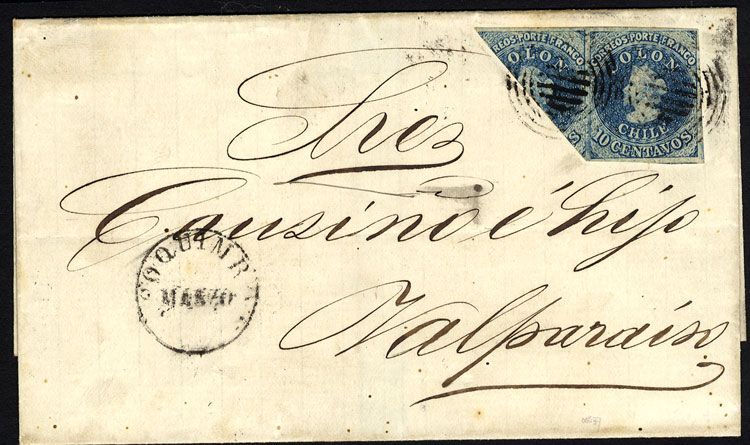 CORREOS PORTE FRANCO
COLON
CORREOS PORTE FRANCO
COLON
CHILE
10 CENTAVOS
Sres
Cousiño é hijo
Valparaiso
COQUIMBO
MARZO